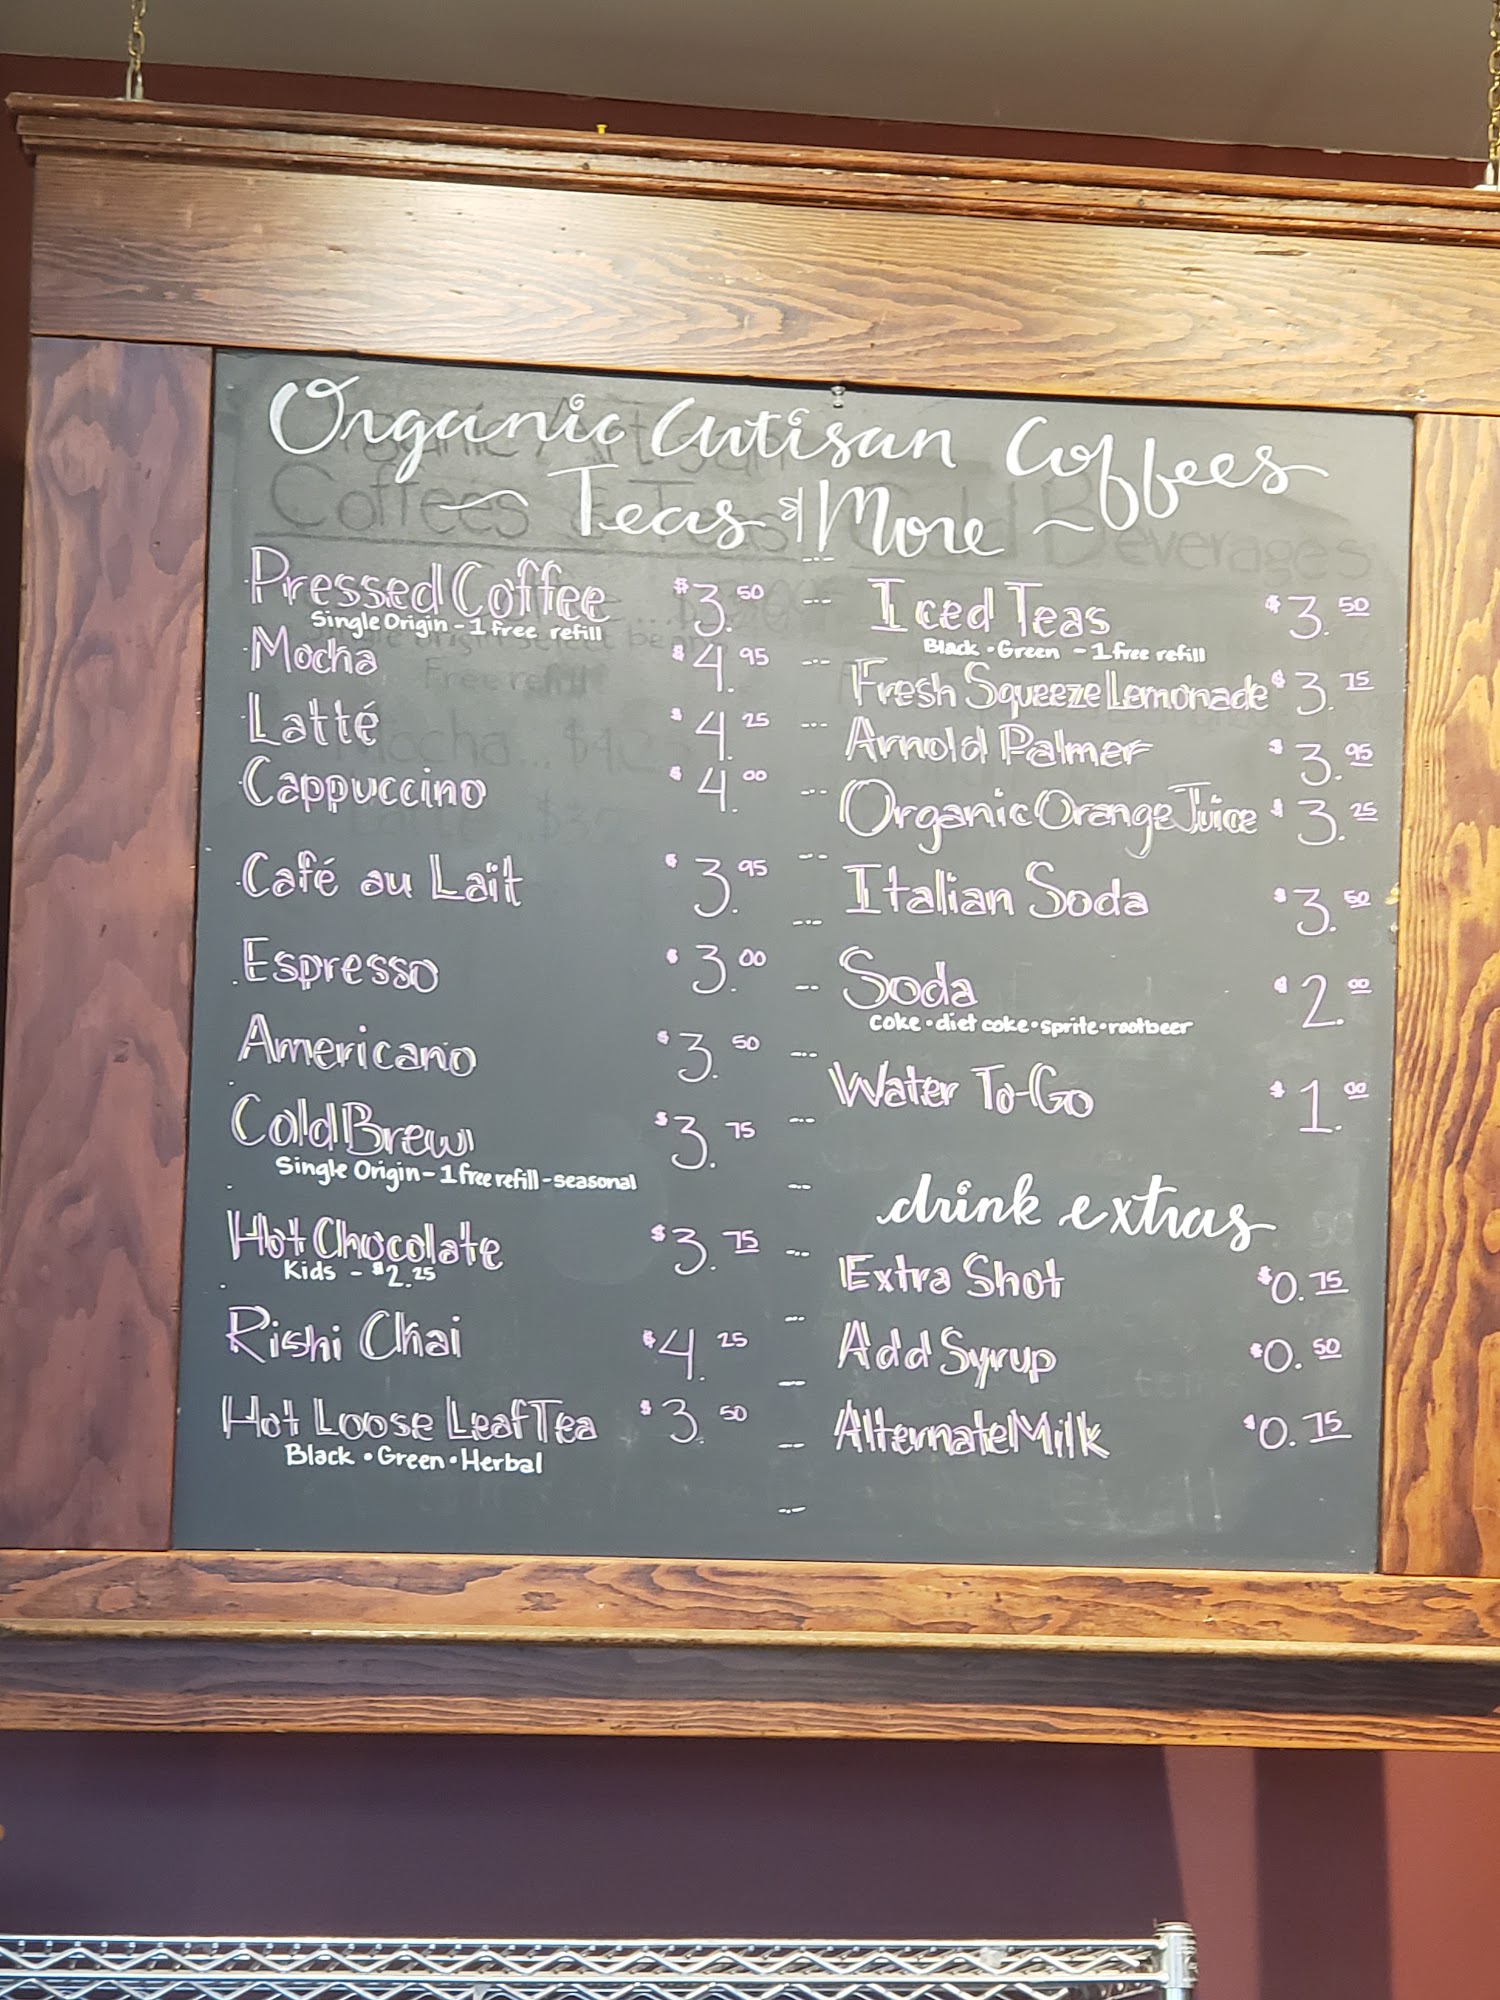 Organic Artisan Coffees
~ Teas & More ~
Pressed Coffee $3.50
Single Origin - 1 free refill
Mocha $4.95
Latté $4.25
Cappuccino $4.00
Café au Lait $3.95
Espresso $3.00
Americano $3.50
Cold Brew $3.75
Single Origin - 1 free refill - seasonal
Hot Chocolate $3.75
Kids - $2.25
Rishi Chai $4.25
Hot Loose Leaf Tea $3.50
Black • Green • Herbal
Iced Teas $3.50
Black • Green - 1 free refill
Fresh Squeeze Lemonade $3.75
Arnold Palmer $3.95
Organic Orange Juice $3.25
Italian Soda $3.50
Soda $2.00
coke • diet coke • sprite • rootbeer
Water To-Go $1.00
drink extras
Extra Shot $0.75
Add Syrup $0.50
Alternate Milk $0.75